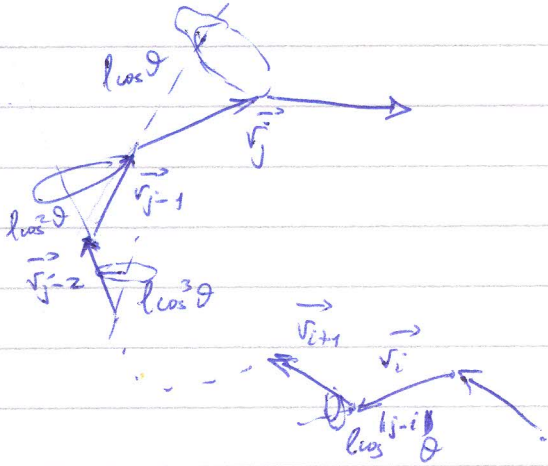 l cosϑ
r⃗_j
r⃗_{j-1}
l cos²ϑ
r⃗_{j-2}
l cos³ϑ
r⃗_{i+1}
r⃗_i
l cos^{|j-i|}ϑ